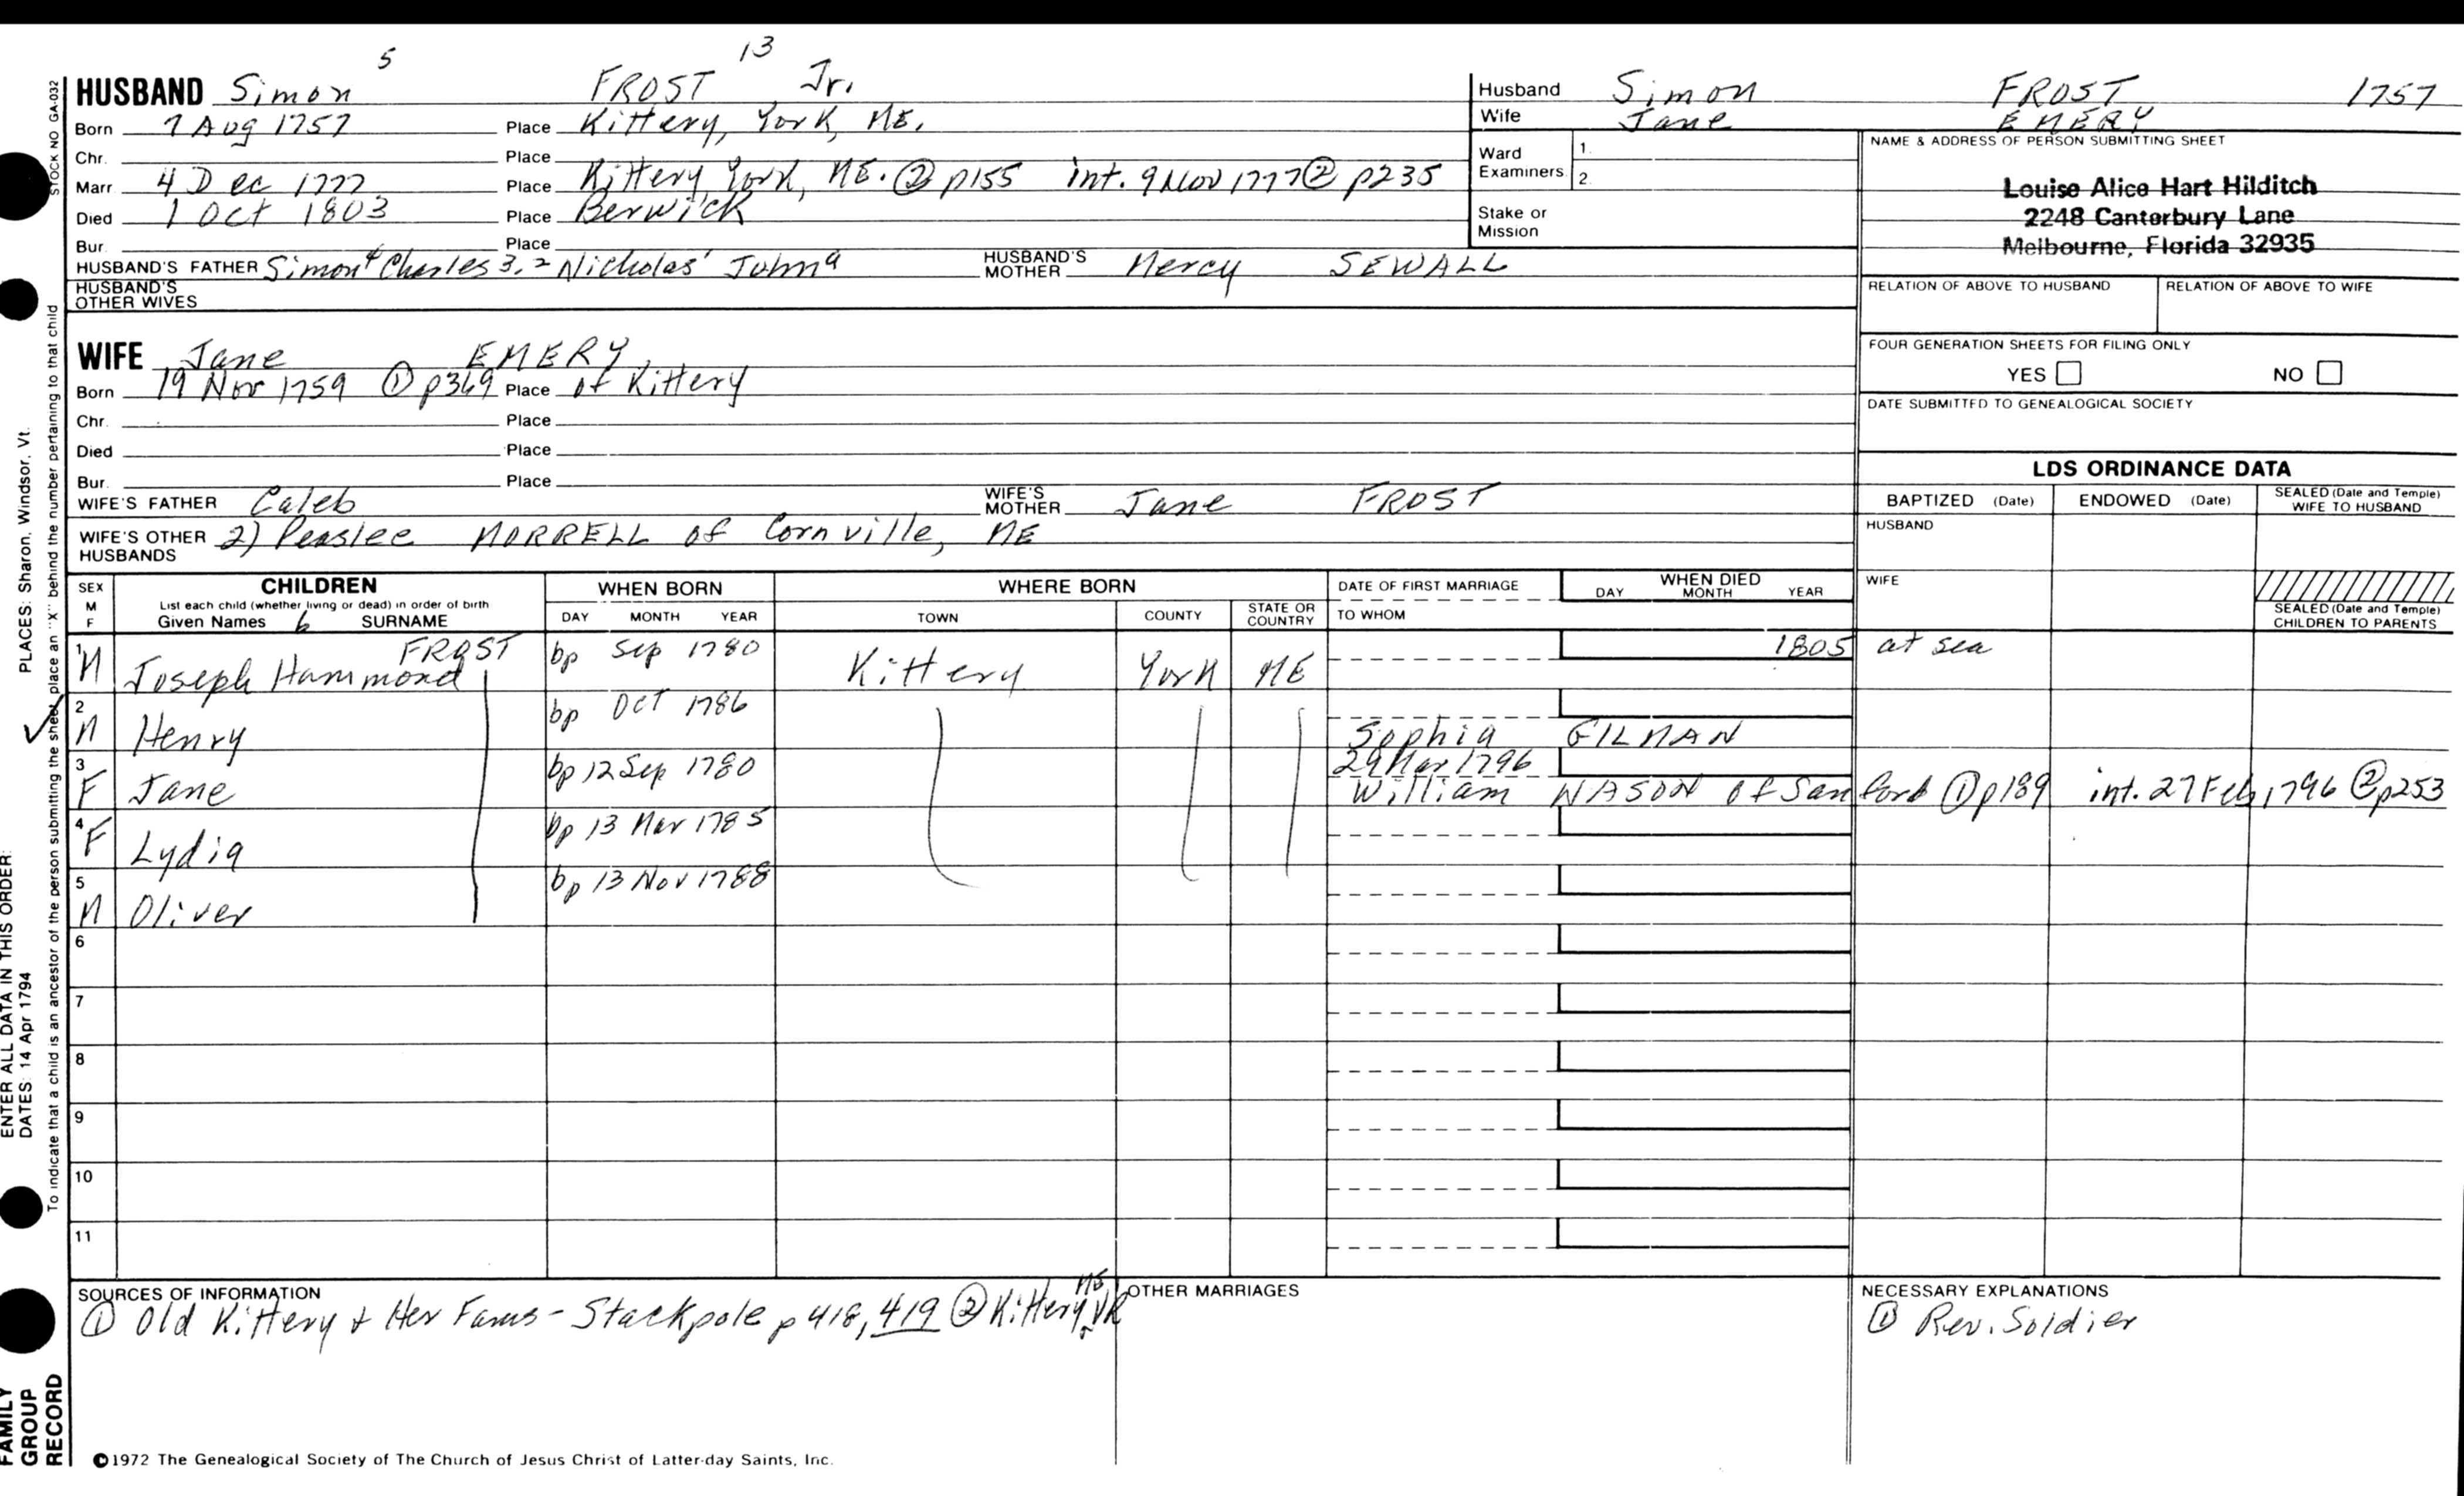 5 13
HUSBAND Simon FROST Jr.
Born 7 Aug 1757 Place Kittery, York, ME.
Chr. Place
Marr. 4 Dec 1777 Place Kittery, York, ME. ② p155 int. 9 Nov 1777 ② p235
Died 1 Oct 1803 Place Berwick
Bur. Place
HUSBAND'S FATHER Simon⁴ Charles 3,2 Nicholas' John ᵃ HUSBAND'S MOTHER Mercy SEWALL
HUSBAND'S OTHER WIVES
WIFE Jane EMERY
Born 19 Nov 1759 ① p369 Place of Kittery
Chr. Place
Died Place
Bur. Place
WIFE'S FATHER Caleb WIFE'S MOTHER Jane FROST
WIFE'S OTHER HUSBANDS 2) Peaslee MORRELL of Cornville, ME
Husband Simon FROST 1757
Wife Jane EMERY
Ward Examiners 1. 2.
Stake or Mission
NAME & ADDRESS OF PERSON SUBMITTING SHEET
Louise Alice Hart Hilditch
2248 Canterbury Lane
Melbourne, Florida 32935
RELATION OF ABOVE TO HUSBAND RELATION OF ABOVE TO WIFE
FOUR GENERATION SHEETS FOR FILING ONLY
YES NO
DATE SUBMITTED TO GENEALOGICAL SOCIETY
LDS ORDINANCE DATA
BAPTIZED (Date) ENDOWED (Date) SEALED (Date and Temple) WIFE TO HUSBAND
HUSBAND
WIFE
SEALED (Date and Temple) CHILDREN TO PARENTS
SEX M F CHILDREN WHEN BORN WHERE BORN DATE OF FIRST MARRIAGE WHEN DIED
List each child (whether living or dead) in order of birth
Given Names 6 SURNAME DAY MONTH YEAR TOWN COUNTY STATE OR COUNTRY TO WHOM DAY MONTH YEAR
1 M Joseph Hammond FROST bp Sep 1780 Kittery York ME 1805 at sea
2 M Henry bp Oct 1786 Sophia GILMAN
3 F Jane bp 12 Sep 1780 29 Mar 1796 William NASON of Sanford ① p189 int. 27 Feb 1796 ② p253
4 F Lydia bp 13 Mar 1785
5 M Oliver bp 13 Nov 1788
6
7
8
9
10
11
SOURCES OF INFORMATION
① Old Kittery & Her Fams - Stackpole p 418, 419 ② Kittery, ME VR
OTHER MARRIAGES
NECESSARY EXPLANATIONS
① Rev. Soldier
©1972 The Genealogical Society of The Church of Jesus Christ of Latter-day Saints, Inc.
STOCK NO GA-032
To indicate that a child is an ancestor of the person submitting the sheet, place an "X" behind the number pertaining to that child
ENTER ALL DATA IN THIS ORDER:
DATES: 14 Apr 1794 PLACES: Sharon, Windsor, Vt.
FAMILY GROUP RECORD